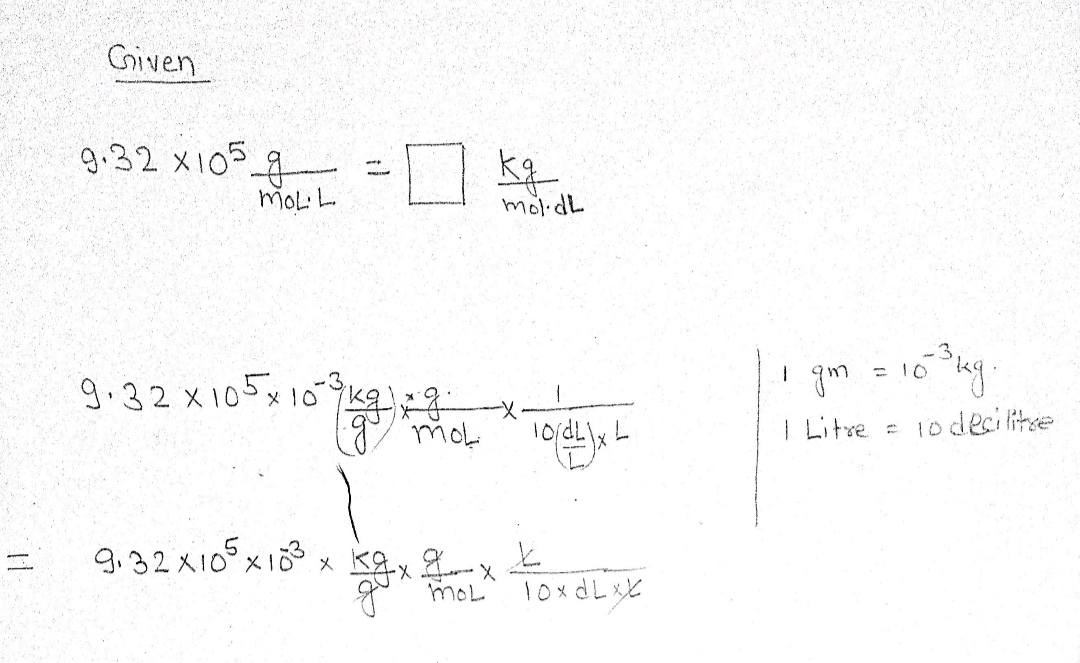 Given
9.32 × 10⁵ g/moL·L = □ kg/mol·dL
9.32 × 10⁵ × 10⁻³ (kg/g) × g/moL × 1/(10(dL/L) × L)
1 gm = 10⁻³ kg.
1 Litre = 10 decilitre
= 9.32 × 10⁵ × 10⁻³ × kg/g × g/moL × L/(10 × dL × L)